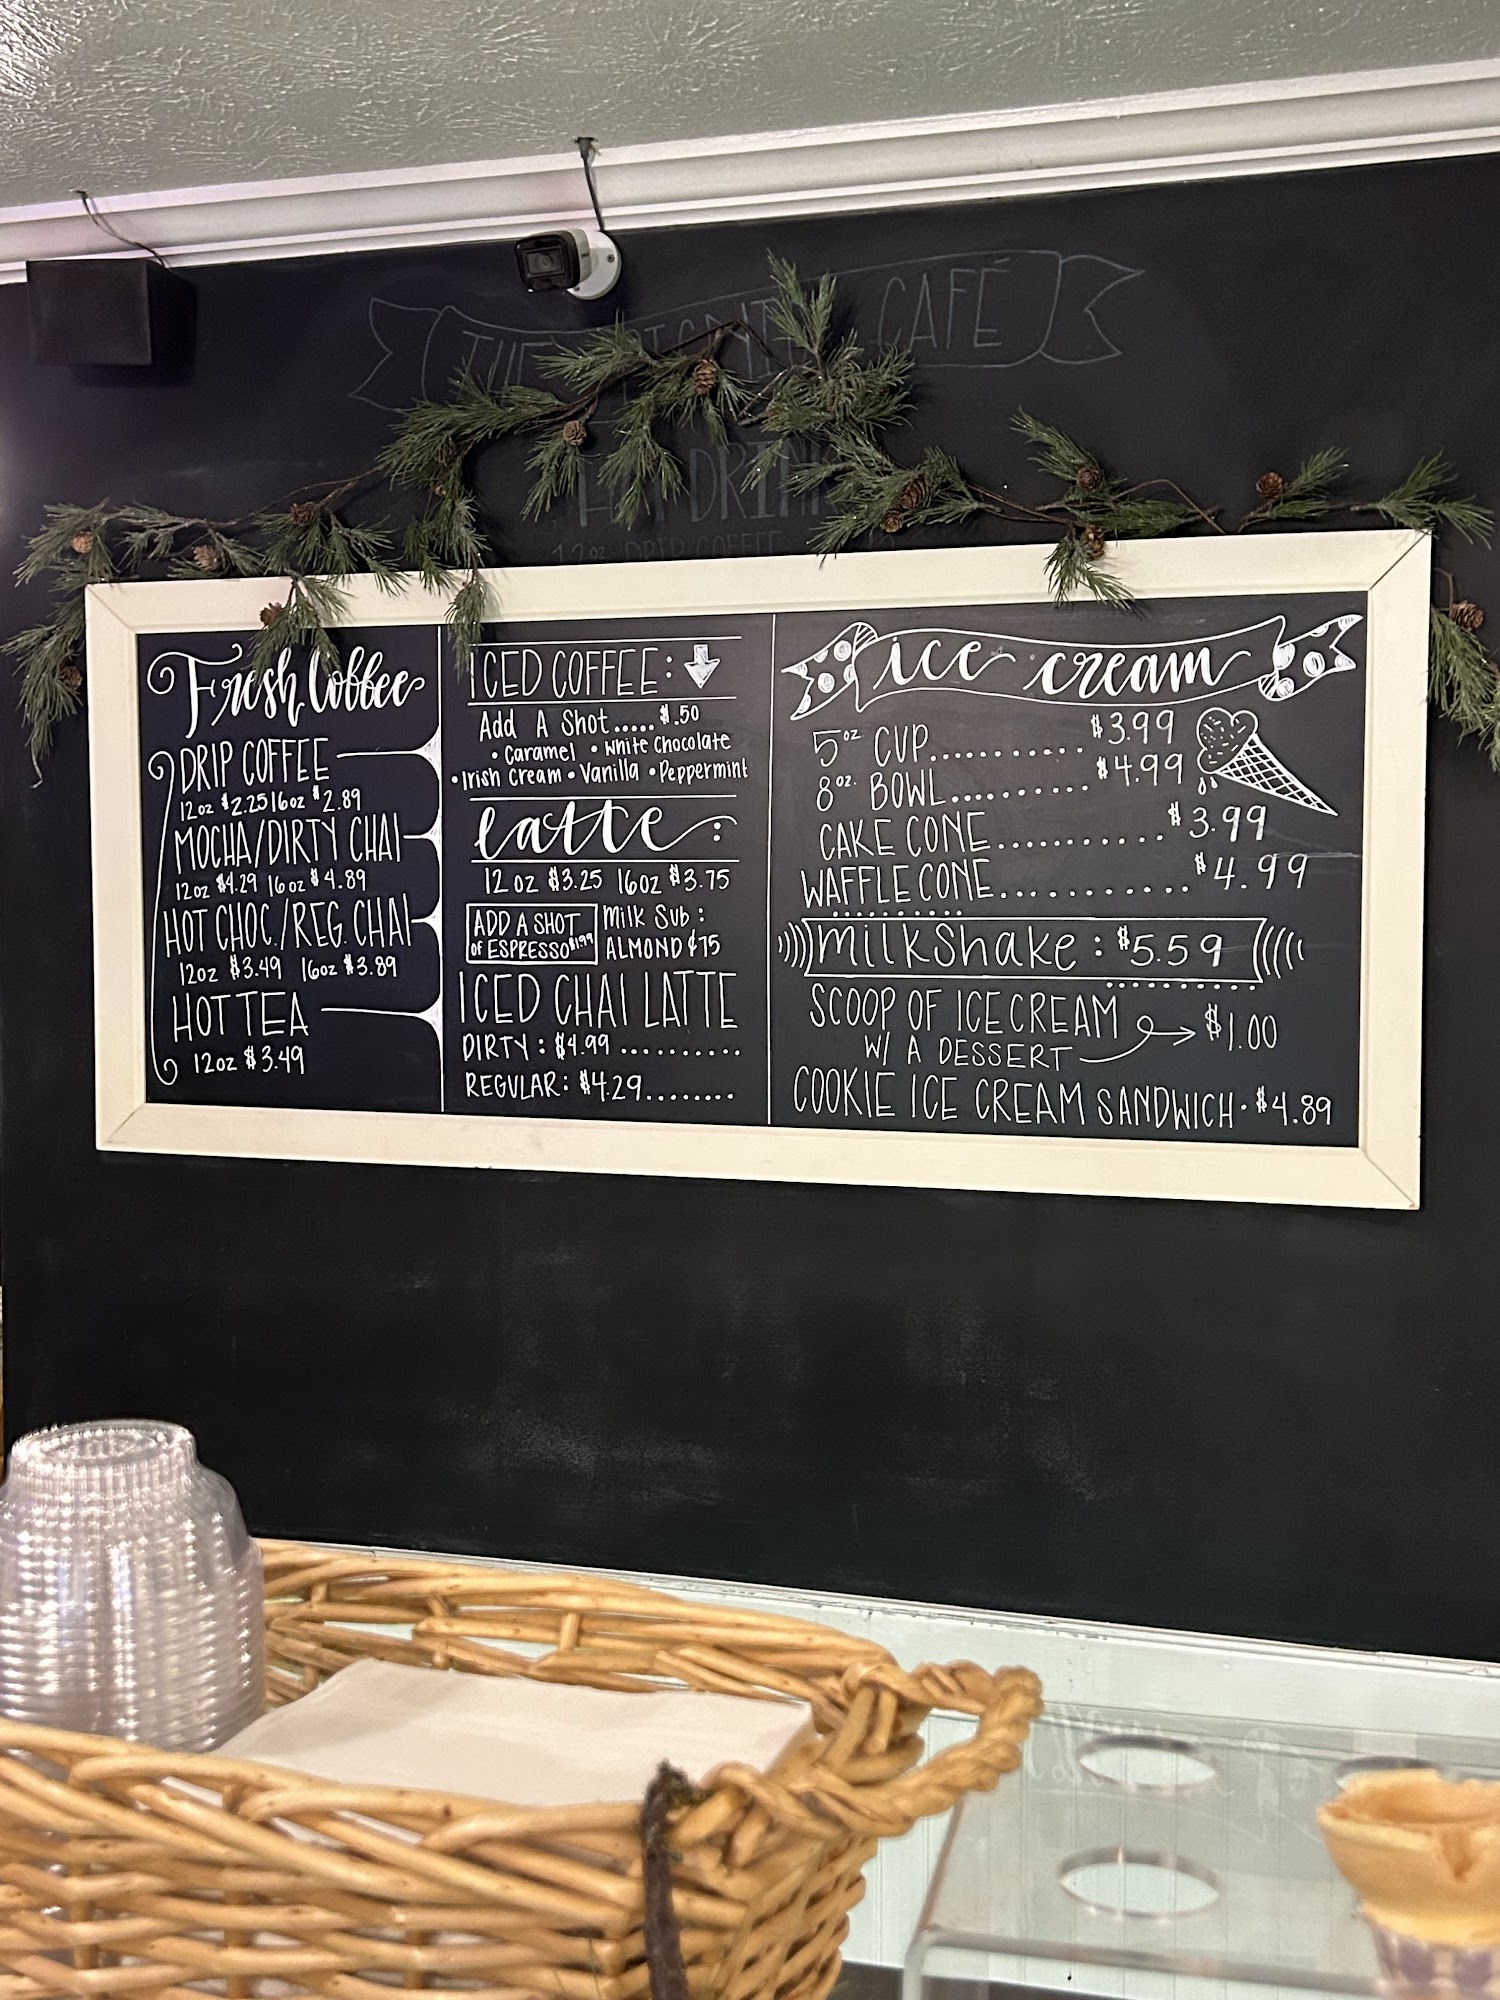 THE CAFÉ
DRINK
12oz DRIP COFFEE
Fresh Coffee
DRIP COFFEE
12oz $2.25 16oz $2.89
MOCHA/DIRTY CHAI
12oz $4.29 16oz $4.89
HOT CHOC./REG. CHAI
12oz $3.49 16oz $3.89
HOT TEA
12oz $3.49
ICED COFFEE:
Add A Shot..... $.50
• Caramel • White Chocolate
• Irish Cream • Vanilla • Peppermint
latte:
12 oz $3.25 16oz $3.75
ADD A SHOT
OF ESPRESSO $1.99
Milk Sub:
ALMOND ¢75
ICED CHAI LATTE
DIRTY: $4.99 ..........
REGULAR: $4.29........
ice cream
5oz CUP.......... $3.99
8oz. BOWL.......... $4.99
CAKE CONE............ $3.99
WAFFLE CONE............ $4.99
milkshake: $5.59
SCOOP OF ICE CREAM
W/ A DESSERT $1.00
COOKIE ICE CREAM SANDWICH • $4.89